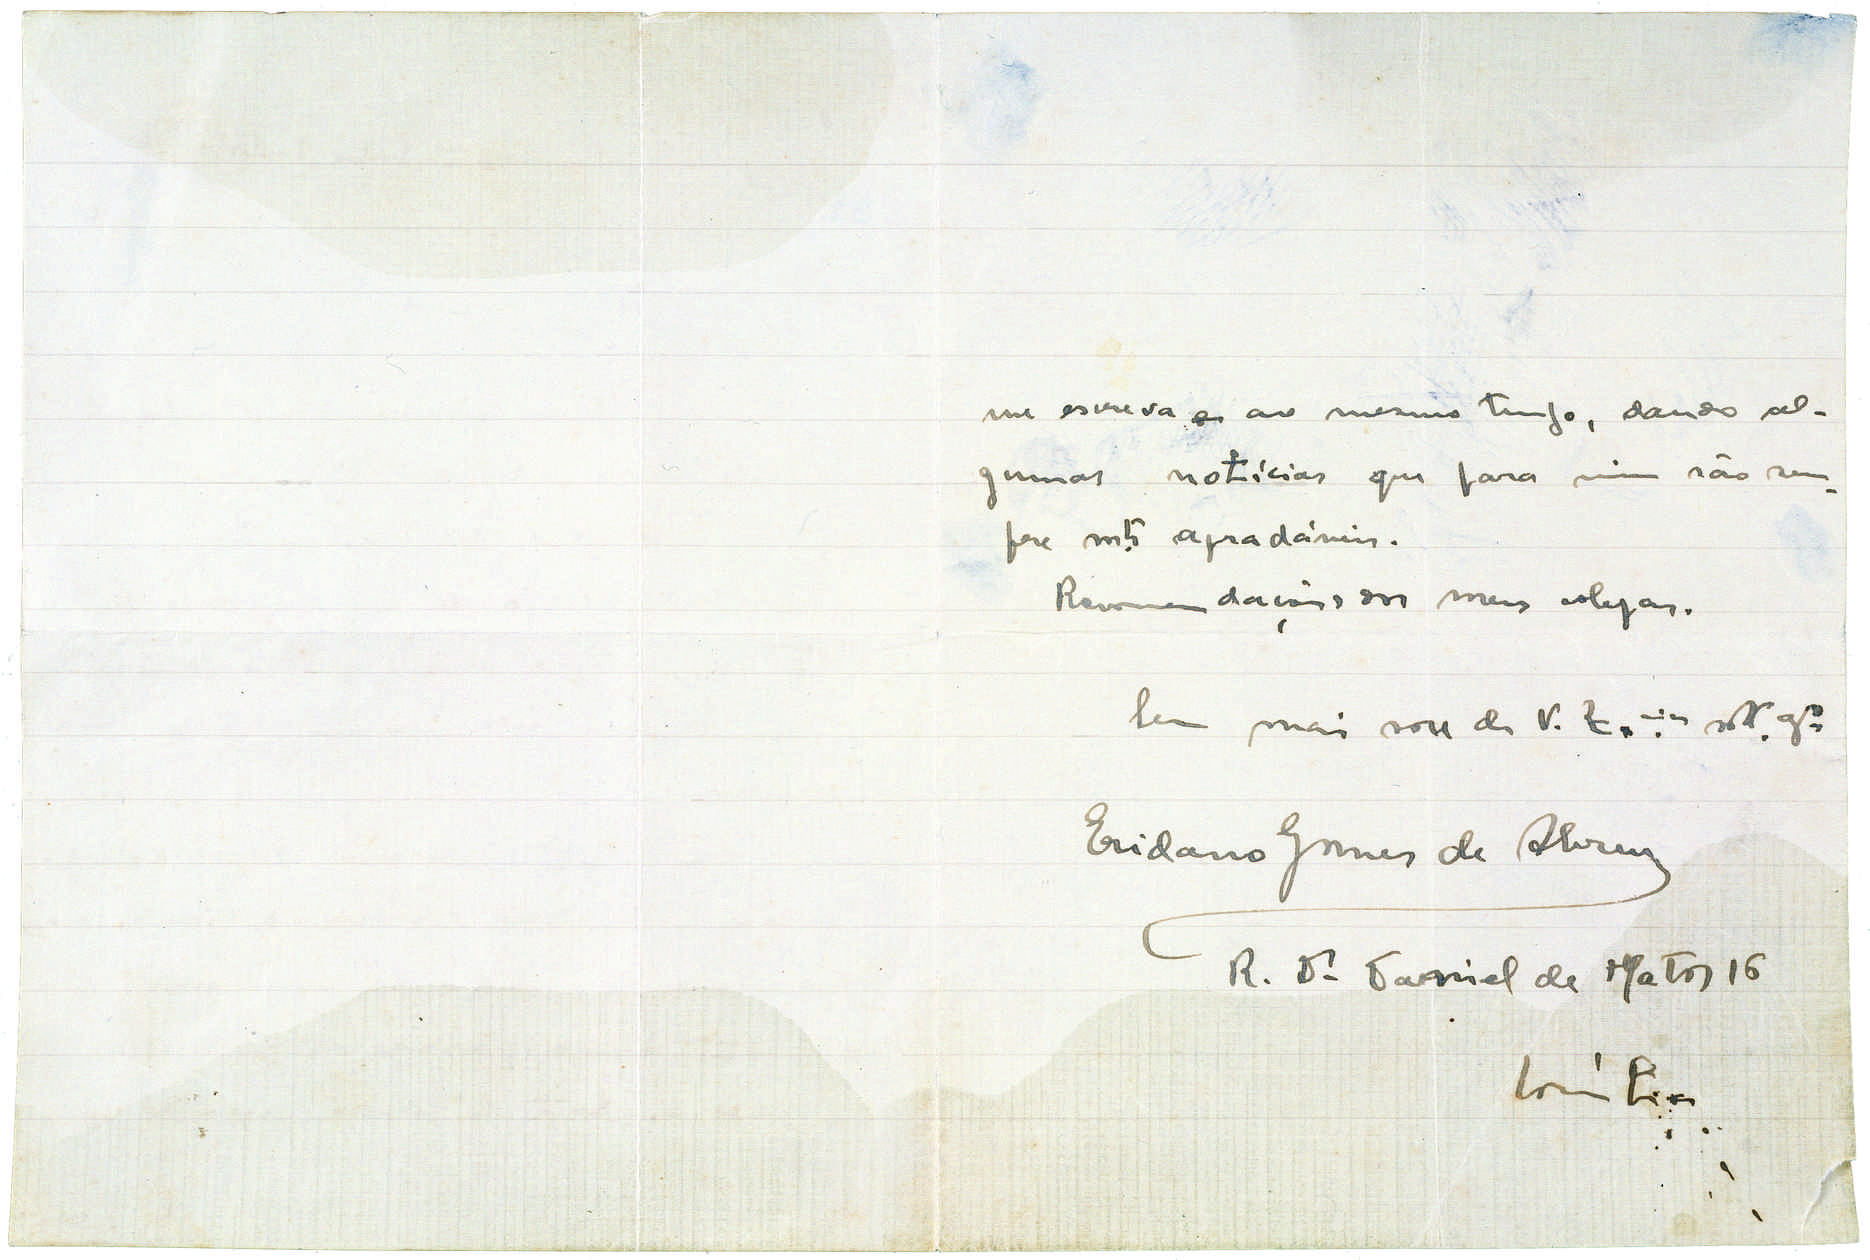 me escreva ao mesmo tempo, dando al-
gumas notícias que para mim são sem-
pre mt.º agradáveis.
Recomendações aos meus colegas.
Sem mais sou de V. Ex.cia
Eridano Gomes de Abreu
R. Dr. Daniel de Matos 16
Coimbra